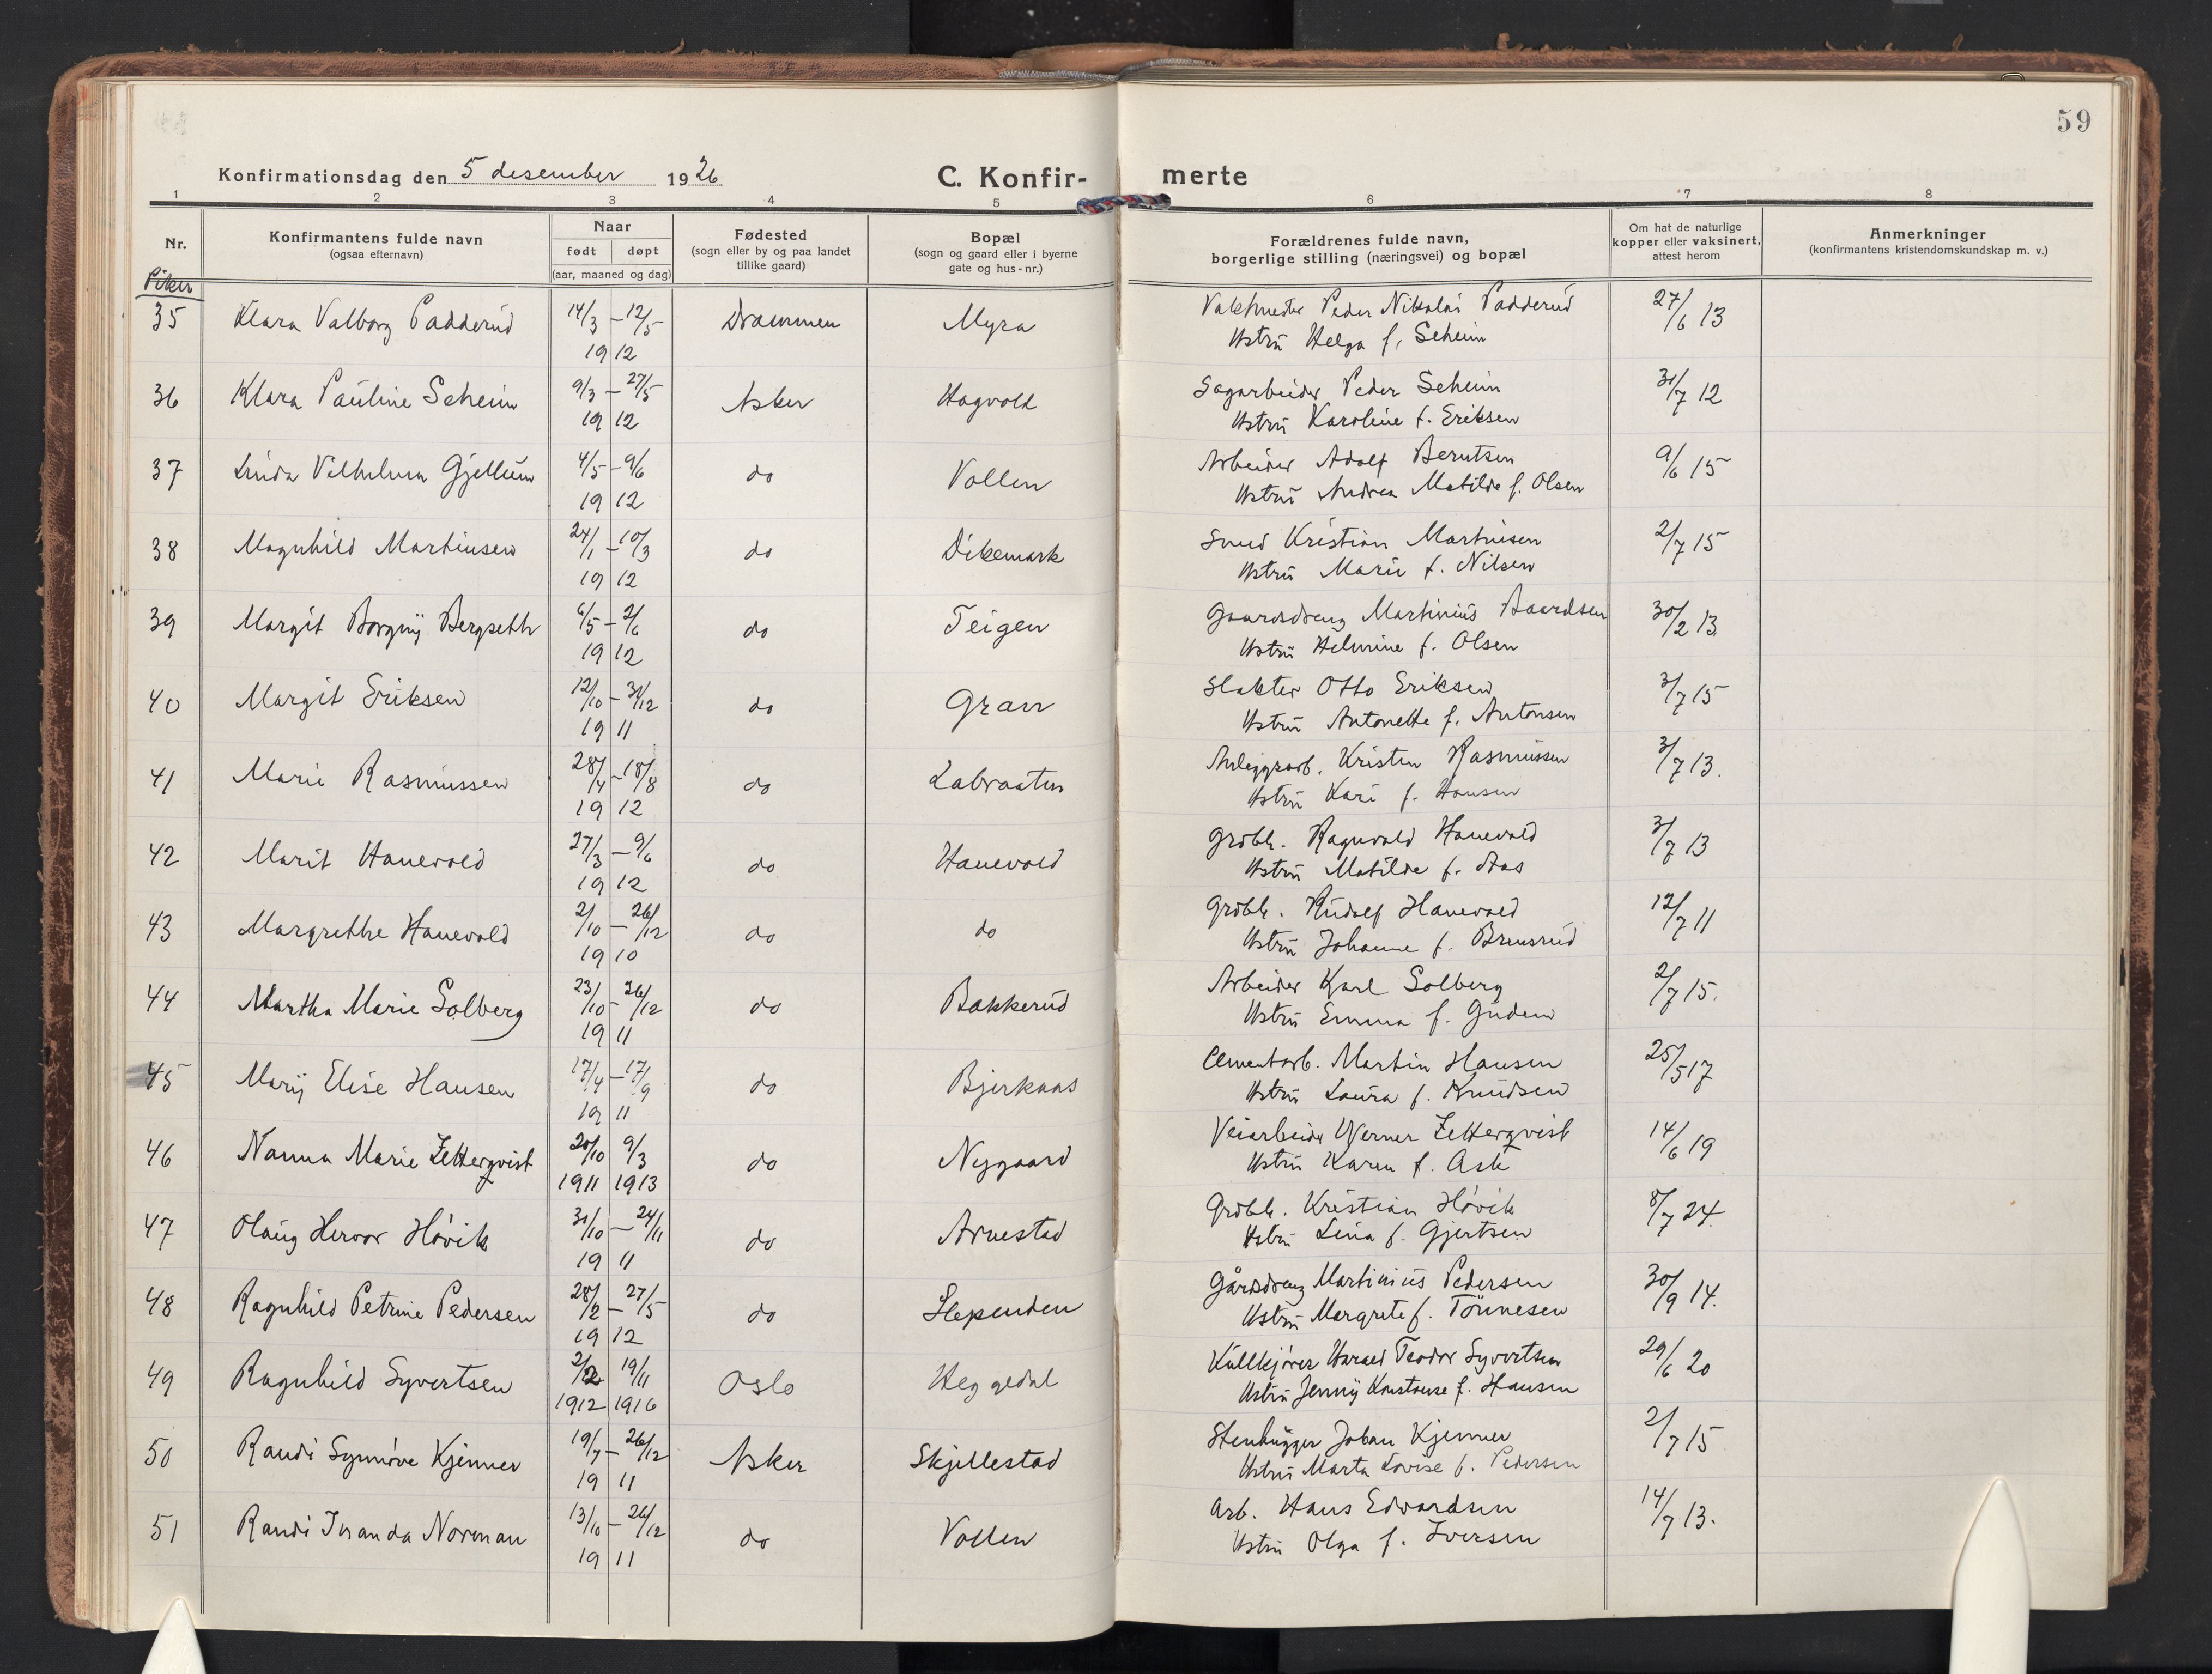 59
Konfirmationsdag den 5 desember 1926
C. Konfirmerte
1 2 3 4 5 6 7 8
Nr.
Konfirmantens fulde navn
(ogsaa efternavn)
Naar
født døpt
(aar, maaned og dag)
Fødested
(sogn eller by og paa landet
tillike gaard)
Bopæl
(sogn og gaard eller i byerne
gate og hus-nr.)
Forældrenes fulde navn,
borgerlige stilling (næringsvei) og bopæl
Om hat de naturlige
kopper eller vaksinert,
attest herom
Anmerkninger
(konfirmantens kristendomskundskap m. v.)
Piker
35 Klara Valborg Padderud 14/3 – 12/5 Drammen Myra Vaktmester Peder Nikolai Padderud 27/6 13
19 12 Hstru Helga f. Seheim
36 Klara Pauline Seheim 9/3 – 27/5 Asker Hagvold Sagarbeider Peder Seheim 31/7 12
19 12 Hstru Karoline f. Eriksen
37 Linda Vilhelma Gjellum 4/5 – 9/6 do Vollen Arbeider Adolf Berntsen 9/6 15
19 12 Hstru Andrea Matilde f. Olsen
38 Magnhild Martinsen 24/1 – 10/3 do Dikemark Smed Kristian Martinsen 2/7 15
19 12 Hstru Marie f. Nilsen
39 Margit Borgny Bergseth 6/5 – 2/6 do Teigen Gaardsdreng Martinius Baardsen 30/2 13
19 12 Hstru Helmine f. Olsen
40 Margit Eriksen 12/10 – 31/12 do Gran Slakter Otto Eriksen 3/7 15
19 11 Hstru Antonette f. Antonsen
41 Marie Rasmussen 28/4 – 18/8 do Labraaten Anleggsarb. Kristen Rasmussen 3/7 13.
19 12 Hstru Kari f. Hansen
42 Marit Hanevold 27/3 – 9/6 do Hanevold Grdbr. Ragnvald Hanevold 3/7 13
19 12 Hstru Matilde f. Aas
43 Margrethe Hanevold 2/10 – 26/12 do do Grdbr. Rudolf Hanevold 12/7 11
19 10 Hstru Johanne f. Brensrud
44 Martha Marie Solberg 23/10 – 26/12 do Bakkerud Arbeider Karl Solberg 2/7 15.
19 11 Hstru Emma f. Gudem
45 Mary Elise Hansen 17/4 – 17/9 do Bjerkaas Cementarb. Martin Hansen 25/5 17
19 11 Hstru Laura f. Knudsen
46 Nanna Marie Zetterqvist 20/10 9/3 do Nygaard Veiarbeider Werner Zetterqvist 14/6 19
1911 1913 Hstru Karen f. Ask
47 Olaug Hervor Høvik 31/10 – 24/11 do Arnestad Grdbr. Kristian Høvik 8/7 24.
19 11 Hstru Lina f. Gjertsen
48 Ragnhild Petrine Pedersen 28/2 – 27/5 do Slependen Gårdsdreng Martinius Pedersen 30/9 14.
19 12 Hstru Margrete f. Tönnesen
49 Ragnhild Syvertsen 2/2 19/11 Oslo Heggedal Kullkjører Harald Teodor Syvertsen 29/6 20
1912 1916 Hstru Jenny Konstanse f. Hansen
50 Randi Synnøve Kjenner 19/7 – 26/12 Asker Skjellestad Stenhugger Johan Kjenner 2/7 15
19 11 Hstru Marta Lovise f. Pedersen
51 Randi Iranda Norman 13/10 – 26/12 do Vollen Arb. Hans Edvardsen 14/7 13.
19 11 Hstru Olga f. Iversen